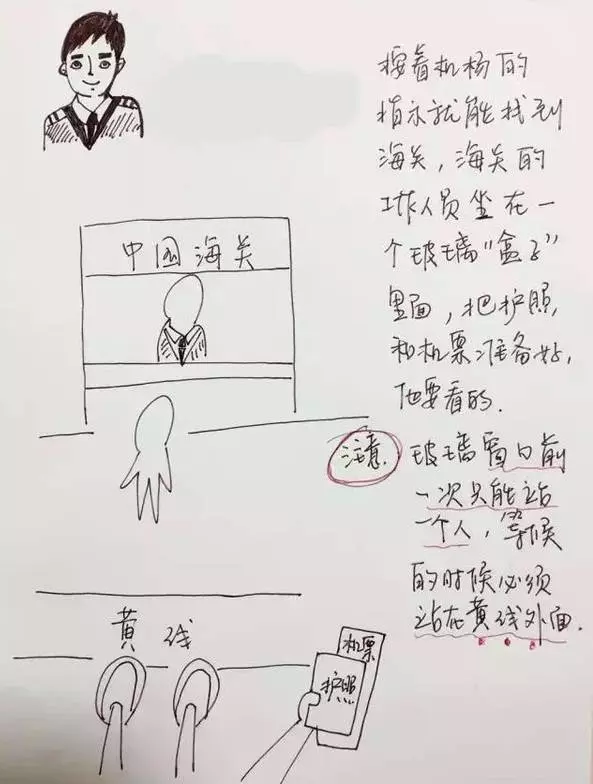 中国海关
按着机场的
指示就能找到
海关,海关的
工作人员坐在一
个玻璃“盒子”
里面,把护照,
和机票准备好,
他要看的.
注意.
玻璃窗口前
一次只能站
一个人,等候
的时候必须
站在黄线外面.
黄线
机票
护照